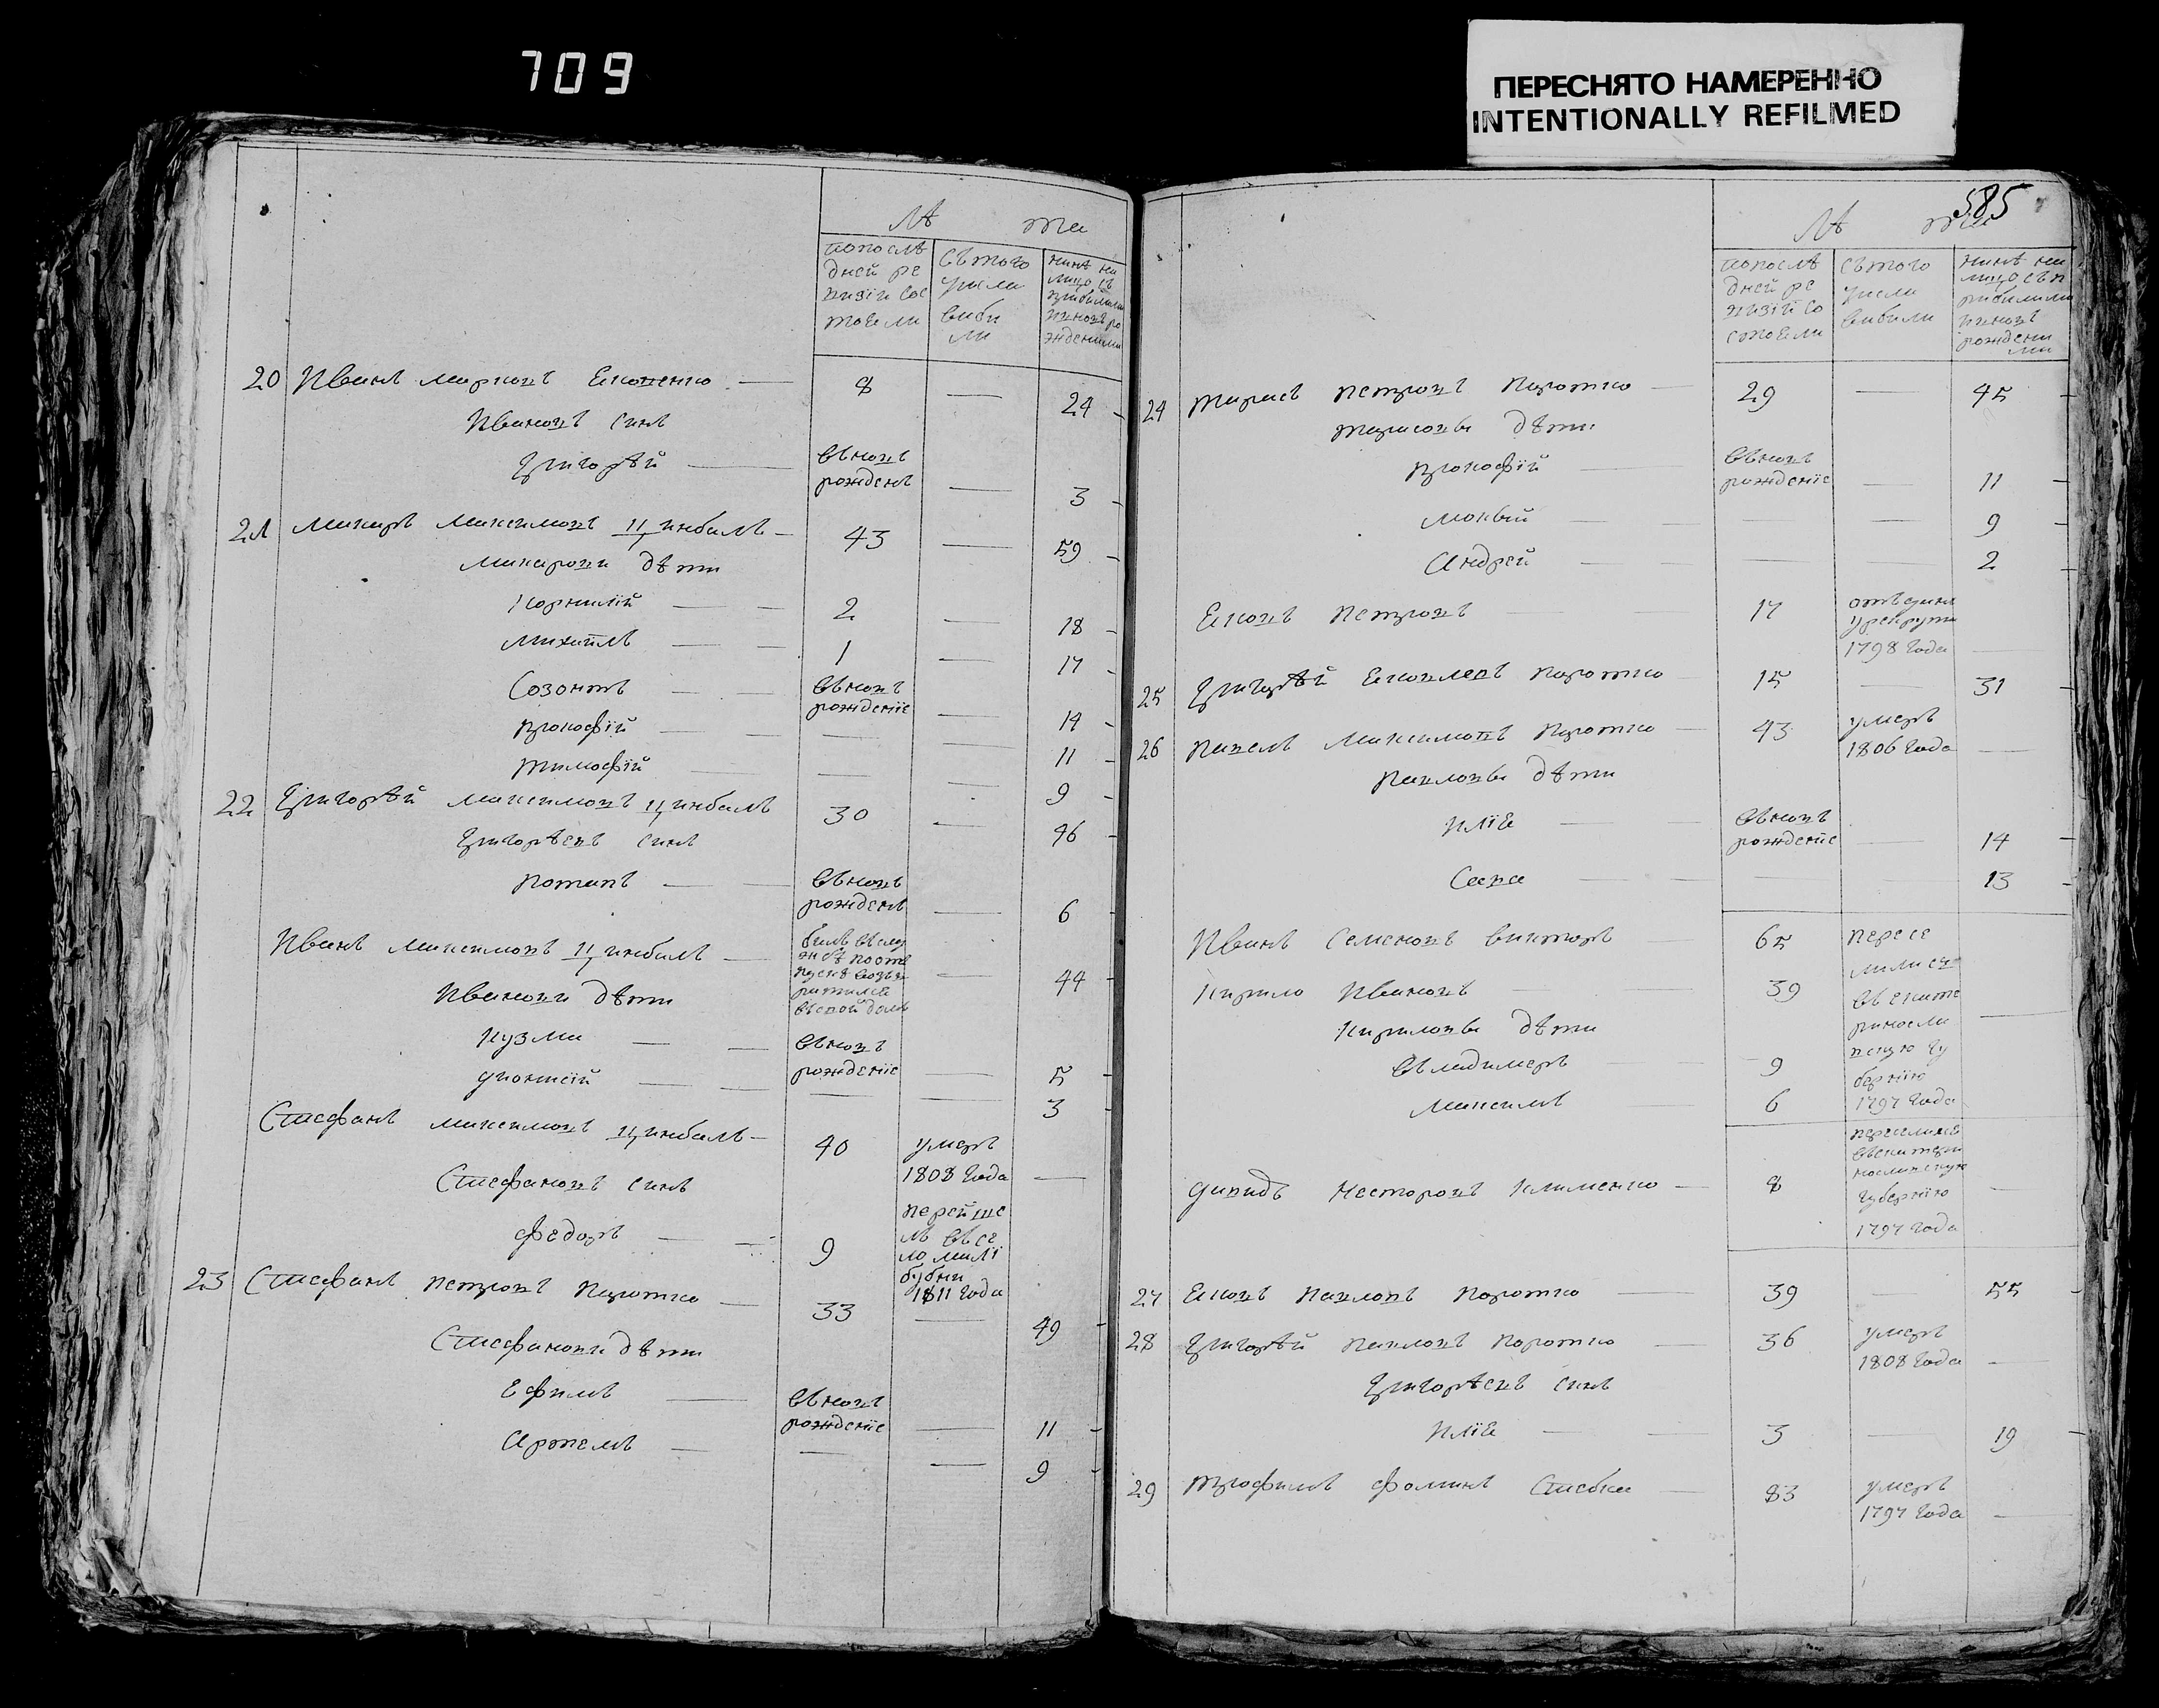 709
ПЕРЕСНЯТО НАМЕРЕННО
INTENTIONALLY REFILMED
Лѣ та
попослѣ
дней ре
визіи сос
тояли
съ того
числа
выбы
ли
нинѣ на
лицо съ
прибилими
и вновъ ро
жденими
20 Иванъ Марковъ Яковенко — 8 — 24
Ивановъ синъ
Григорѣй — вьновъ
рожденъ — 3
21 Макаръ Максимовъ Цинбалъ — 43 — 59
Макарови дѣти
Корнилій — 2 — 18
Михайлъ — 1 — 17
Созонтъ — вьновъ
рожденіе — 14
Прокофій — — — 11
Тимофій — — — 9
22 Григорѣй Максимовъ Цинбалъ 30 — 46
Григорѣевъ синъ
Потапъ — вьновъ
рожденъ — 6
Иванъ Максимовъ Цинбалъ —
билъ въ слу
жбѣ по от
пуску возвъ
ратился
въ свой домъ — 44
Иванови дѣти
Кузма — вьновъ
рожденіе — 5
Дионисій — — — 3
Стефанъ Максимовъ Цинбалъ — 40 умеръ
1808 года —
Стефановъ синъ
Федоръ — 9 перейше
лъ въ се
ло Малі
бубни
1811 года
23 Стефанъ Петровъ Коротко — 33 — 49
Стефанови дѣти
Ефимъ — вьновъ
рожденіе — 11
Артемъ — — — 9
585
Лѣ та
попослѣ
дней ре
визіи со
стояли
съ того
числа
вибили
нинѣ на
лицо съ п
рибилими
и вновъ
рождени
ми
24 Тарасъ Петровъ Коротко — 29 — 45
Тарасови дѣти
Прокофій — вьновъ
рожденіе — 11
Мокѣй — — — 9
Андрей — — — 2
Яковъ Петровъ — 17 отъданъ
у рекрути
1798 года —
25 Григорѣй Яковлевъ Коротко — 15 — 31
26 Павелъ Максимовъ Коротко — 43 умеръ
1806 года —
Павлови дѣти
Илія — вьновъ
рожденіе — 14
Сава — — — 13
Иванъ Семеновъ Викторъ 65
Кирило Ивановъ — 39
Кирилови дѣти
Владимеръ — 9
Максимъ — 6
пересе
лились
въ екате
риносла
вскую гу
бернію
1797 года —
Давидъ Несторовъ Клименко — 8
переселился
въ екатери
нославскую
губернію
1797 года —
27 Яковъ Павловъ Коротко — 39 — 55
28 Григорѣй Павловъ Коротко — 36 умеръ
1808 года —
Григорѣевъ синъ
Илія — 3 — 19
29 Трофимъ Фоминъ Стебка — 83 умеръ
1797 года —